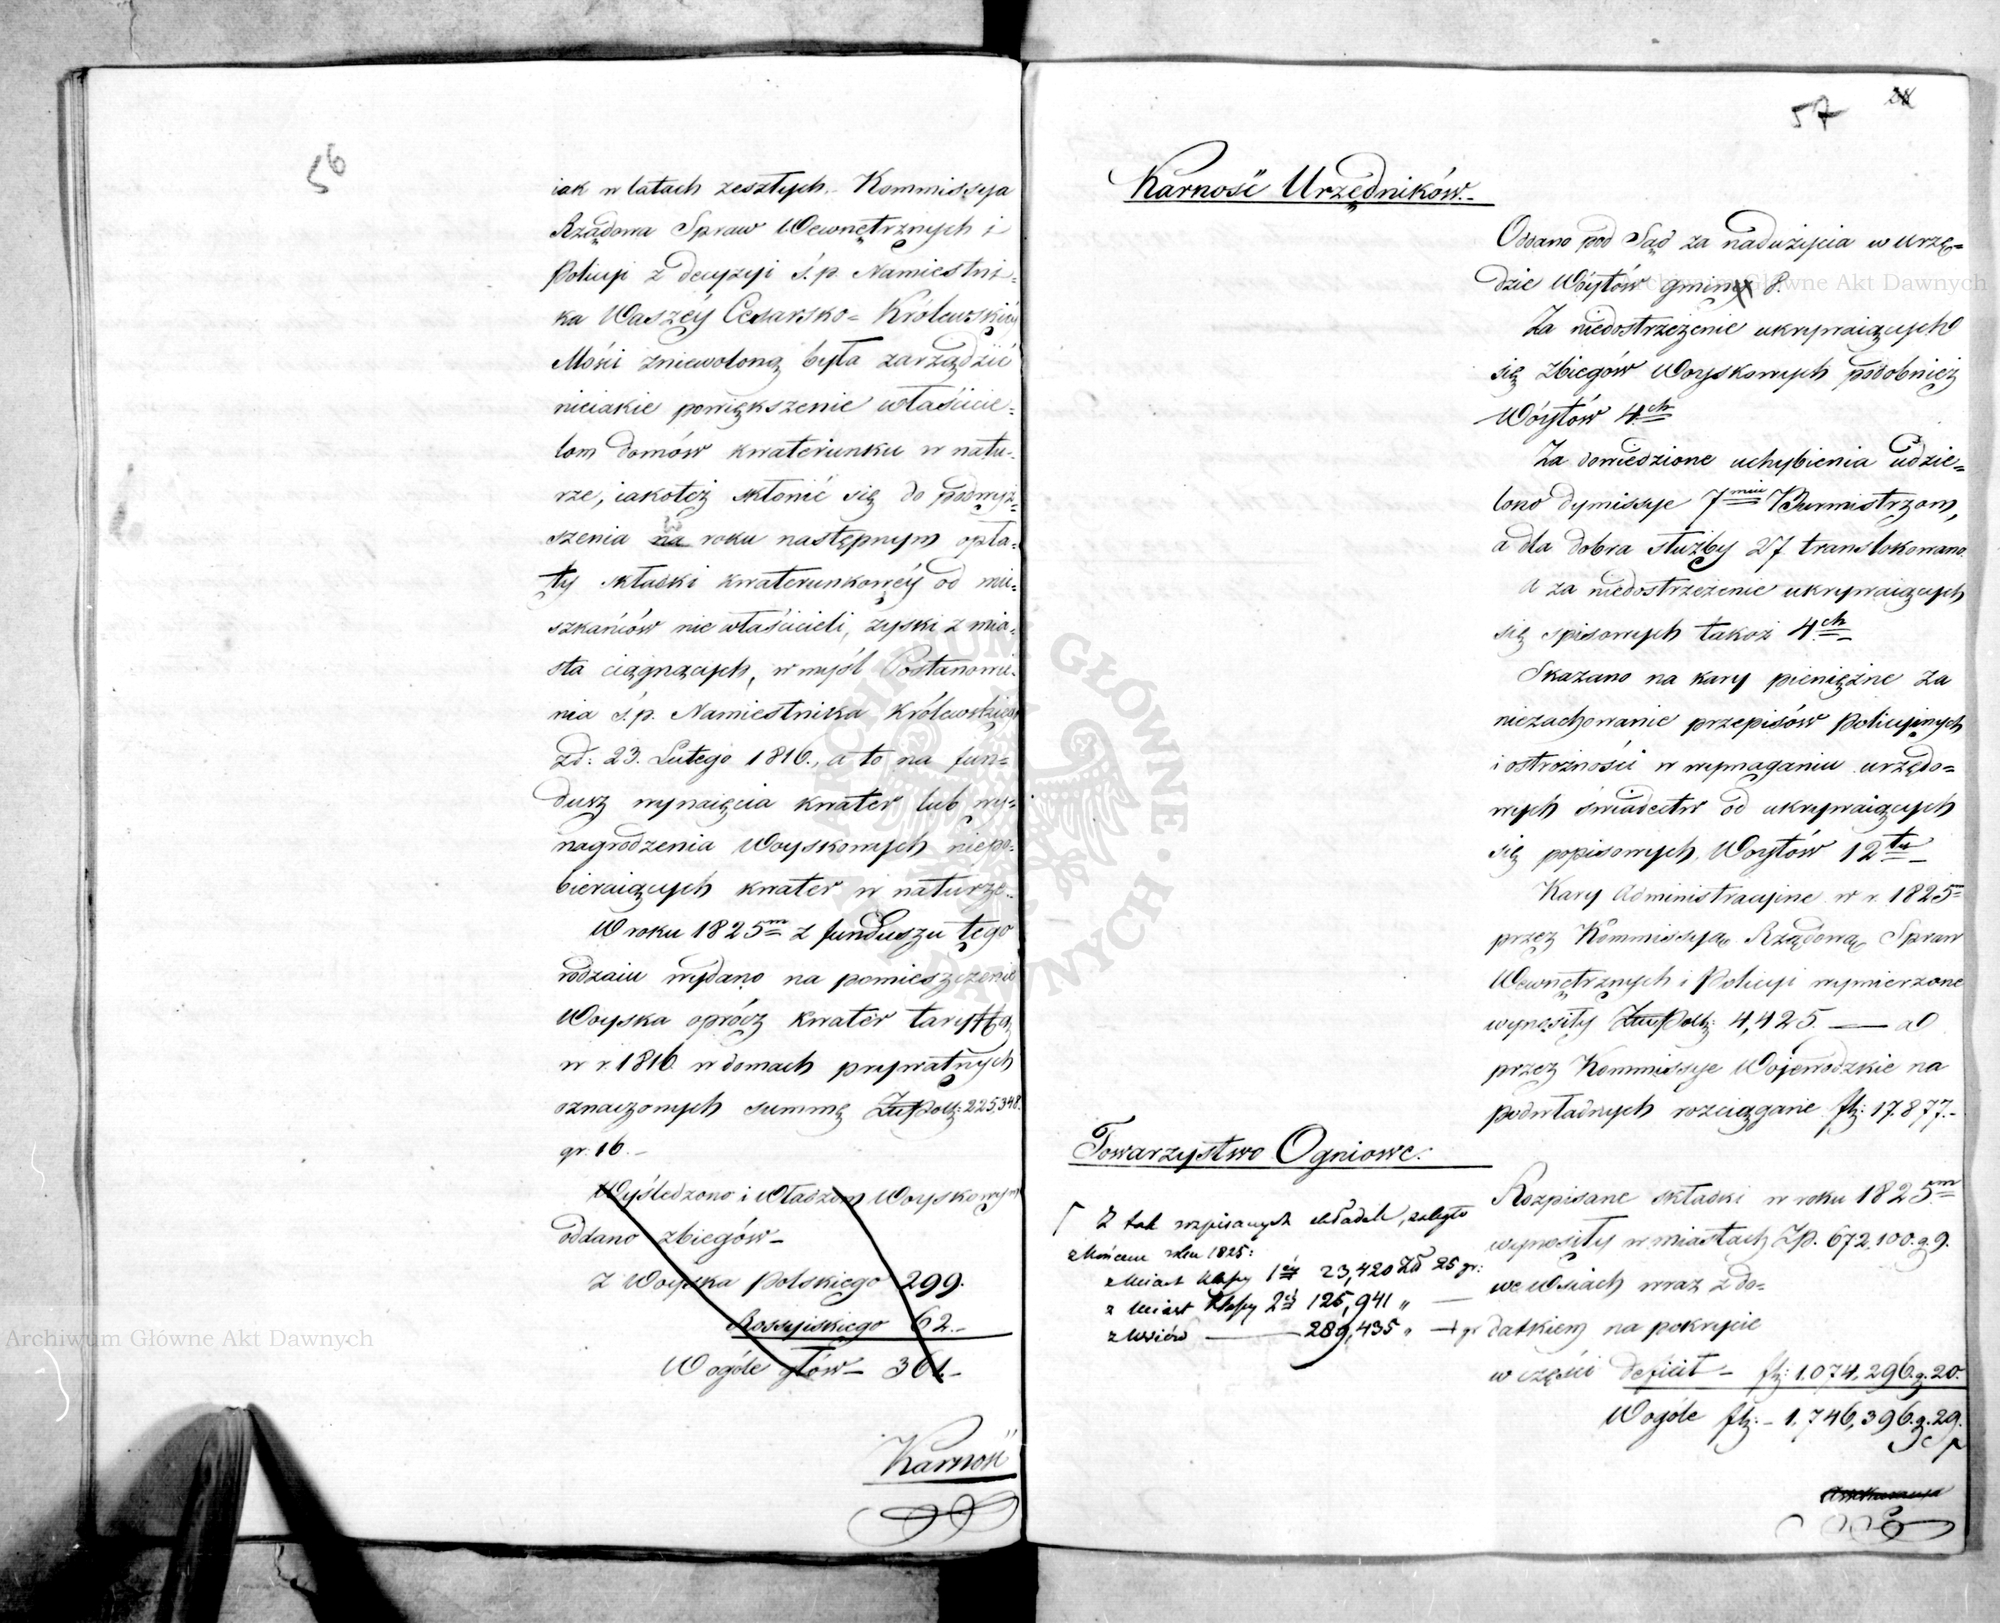 56
iak w latach zeszłych. Kommissya
Rządowa Spraw Wewnętrznych i
Policyi z decyzyi ś. p. Namiestni-
ka Waszéy Cesarsko-Królewskiéy
Mości zniewoloną była zarządzić
nieiakie powiększenie właścicie-
lom domów kwaterunku w natu-
rze, iakoteż skłonić się do podwyż-
szenia w roku następnym opła-
ty składki kwaterunkowéy od mie-
szkańców nie właścicieli, zyski z mia-
sta ciągnących, w myśl Postanowie-
nia ś. p. Namiestnika Królewskiego
z d: 23. Lutego 1816., a to na fun-
dusz wynaięcia kwater lub wy-
nagrodzenia Woyskowych niepo-
bieraiących kwater w naturze.
W roku 1825m z funduszu tego
rodzaiu wydano na pomieszczenie
Woyska oprócz kwater taryffą
w r. 1816 w domach prywatnych
oznaczonych summę Złł Polł: 225,348.
gr. 16.
Wyśledzono i władzom Woyskowym
oddano zbiegów-
z Woyska Polskiego 299.
Rossyiskiego 62.-
Wogóle głów- 361.-
Karność
57
Karność Urzędników.
Oddano pod Sąd za nadużycia w urzę-
dzie Wóytów gmin 8.
Za niedostrzeżenie ukrywaiących
się zbiegów Woyskowych podobnież
Wóytów 4.ch
Za dowiedzione uchybienia udzie-
lono dymissye 7miu Burmistrzom,
a dla dobra służby 27 translokowano.
A za niedostrzeżenie ukrywaiących
się spisowych takoż 4.ch
Skazano na kary pieniężne za
niezachowanie przepisów policyinych
i ostrożności w wymaganiu urzędo-
wych świadectw od ukrywaiących
się popisowych, Wóytów 12tu
Kary Administracyine w r. 1825m
przez Kommissyą Rządową Spraw
Wewnętrznych i Policyi wymierzone
wynosiły Złł Polł: 4,425. — a
przez Kommissye Wojewódzkie na
podwładnych rozciągane fł: 17.877.-
Towarzystwo Ogniowe.
Rozpisane składki w roku 1825m
wynosiły w miastach Zp. 672,100. g. 9.
we Wsiach wraz z do-
datkiem na pokrycie
w części deficit - fł: 1.074,296. g. 20.
Wogóle fł: - 1,746,396. g. 29.
Z tak rozpisanych składek, zaległo
z końcem roku 1825:
z Miast klassy 1éy 23,420 Zł 25 gr:
z Miast klassy 2éy 125,941 „ —
z wsiów — 289,435 „ — gr
Assekuracya
Archiwum Główne Akt Dawnych
Archiwum Główne Akt Dawnych
ARCHIWUM GŁÓWNE AKT DAWNYCH